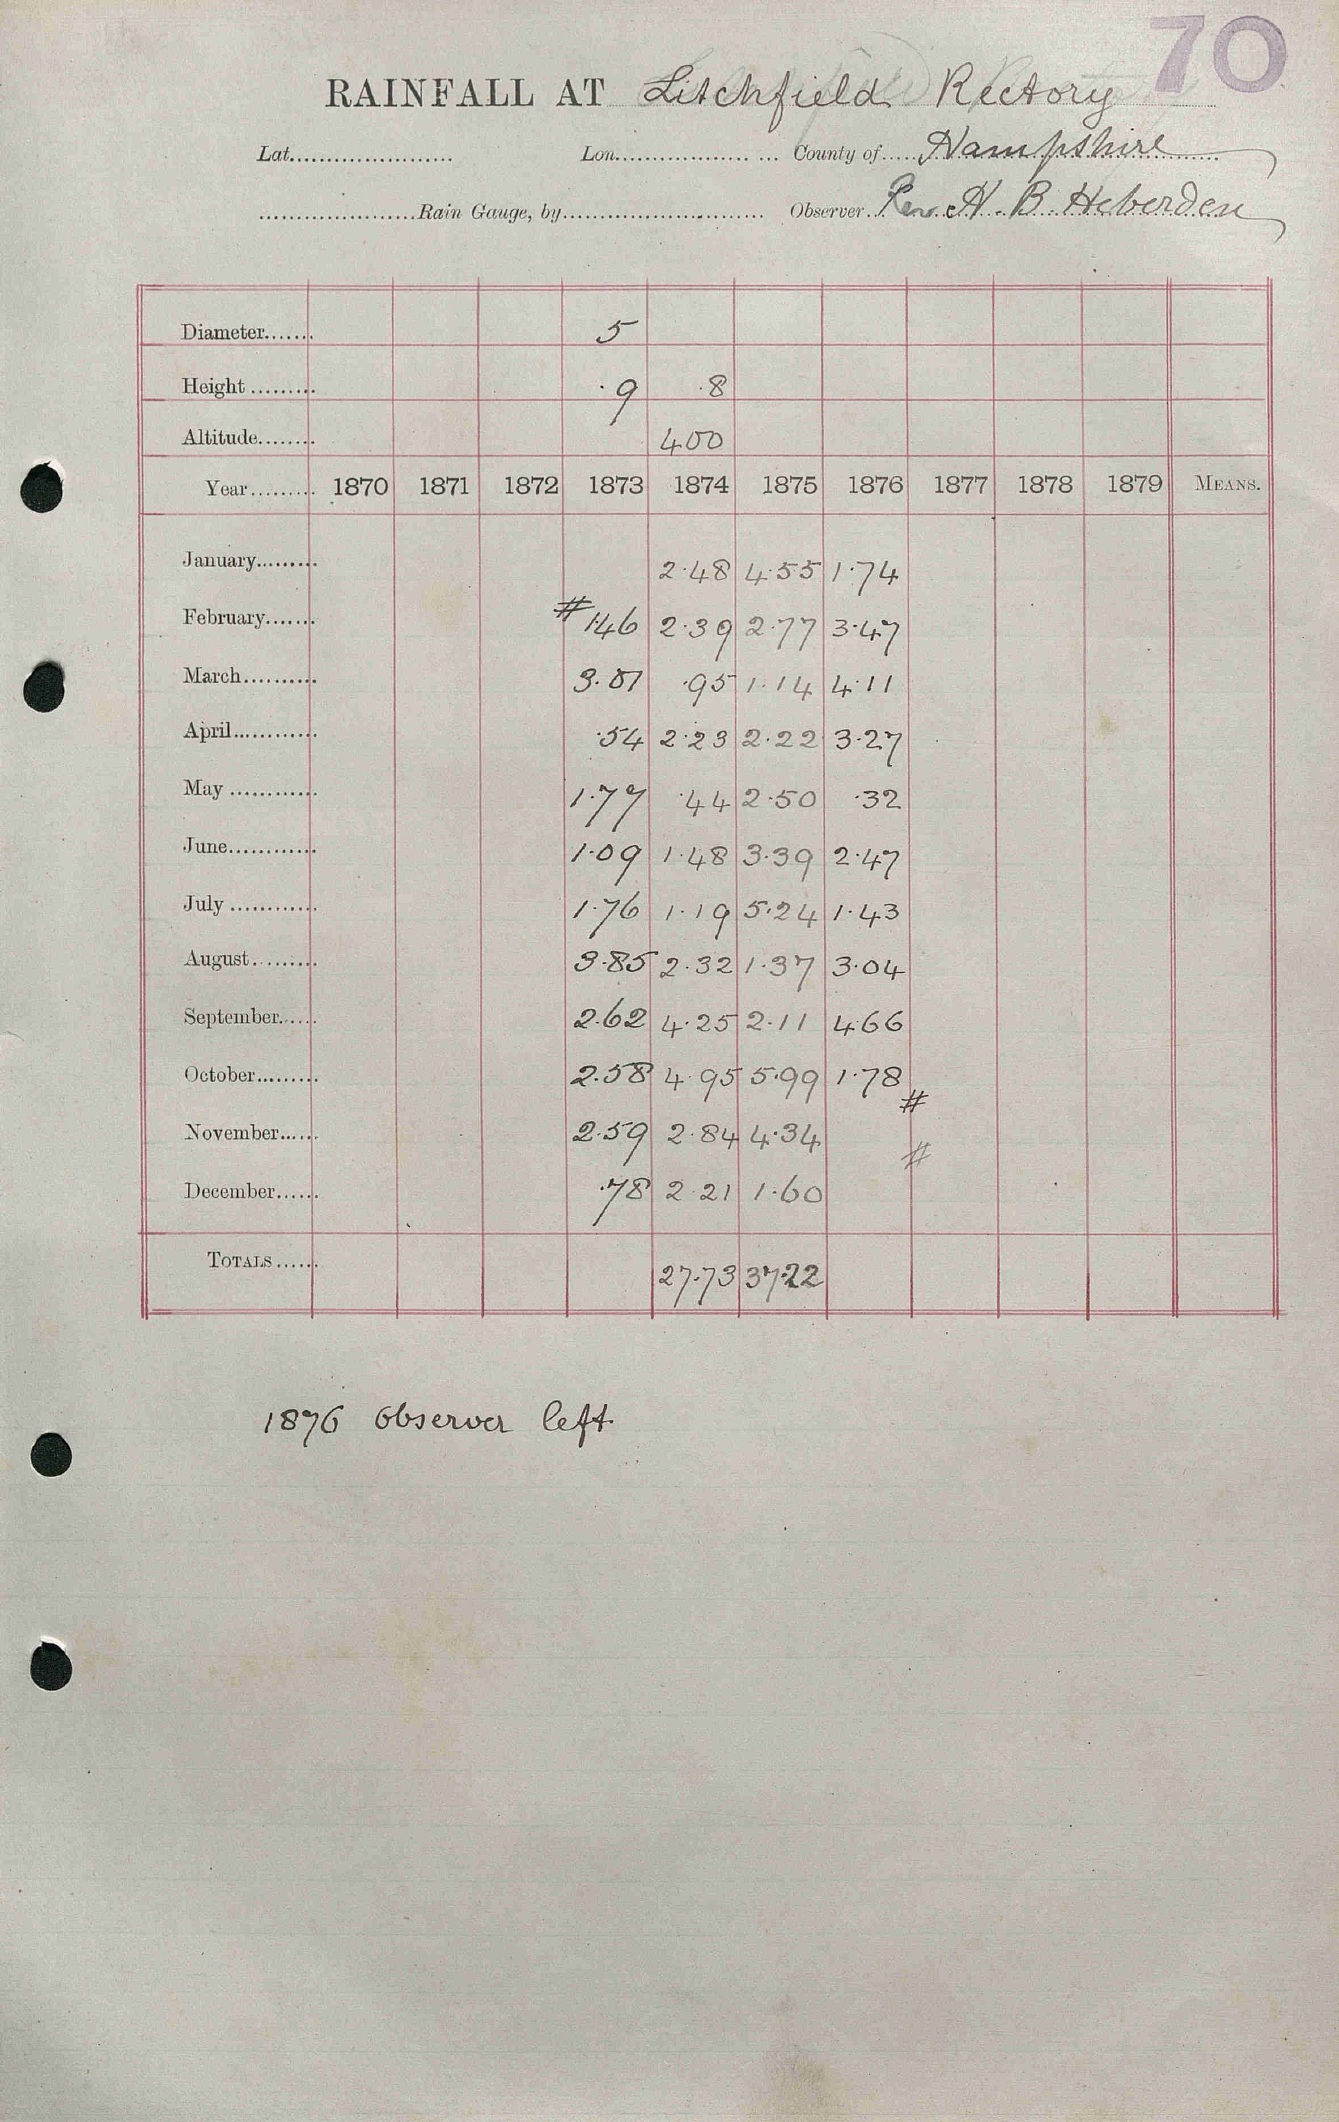 70
RAINFALL AT Litchfield Rectory
Lat...................... Lon...................... County of.....Hampshire
.....................Rain Gauge, by........................... Observer..Rev. H. B. Heberden
Diameter....... 5
Height ......... .9 .8
Altitude........ 400
Year......... 1870 1871 1872 1873 1874 1875 1876 1877 1878 1879 MEANS.
January......... 2.48 4.55 1.74
February....... # 1.46 2.39 2.77 3.47
March.......... 3.01 .95 1.14 4.11
April............ .54 2.23 2.22 3.27
May ............ 1.77 .44 2.50 .32
June............ 1.09 1.48 3.39 2.47
July ............ 1.76 1.19 5.24 1.43
August......... 3.85 2.32 1.37 3.04
September...... 2.62 4.25 2.11 4.66
October......... 2.58 4.95 5.99 1.78 #
November...... 2.59 2.84 4.34 #
December...... .78 2.21 1.60
TOTALS ...... 27.73 37.22
1876 Observer left